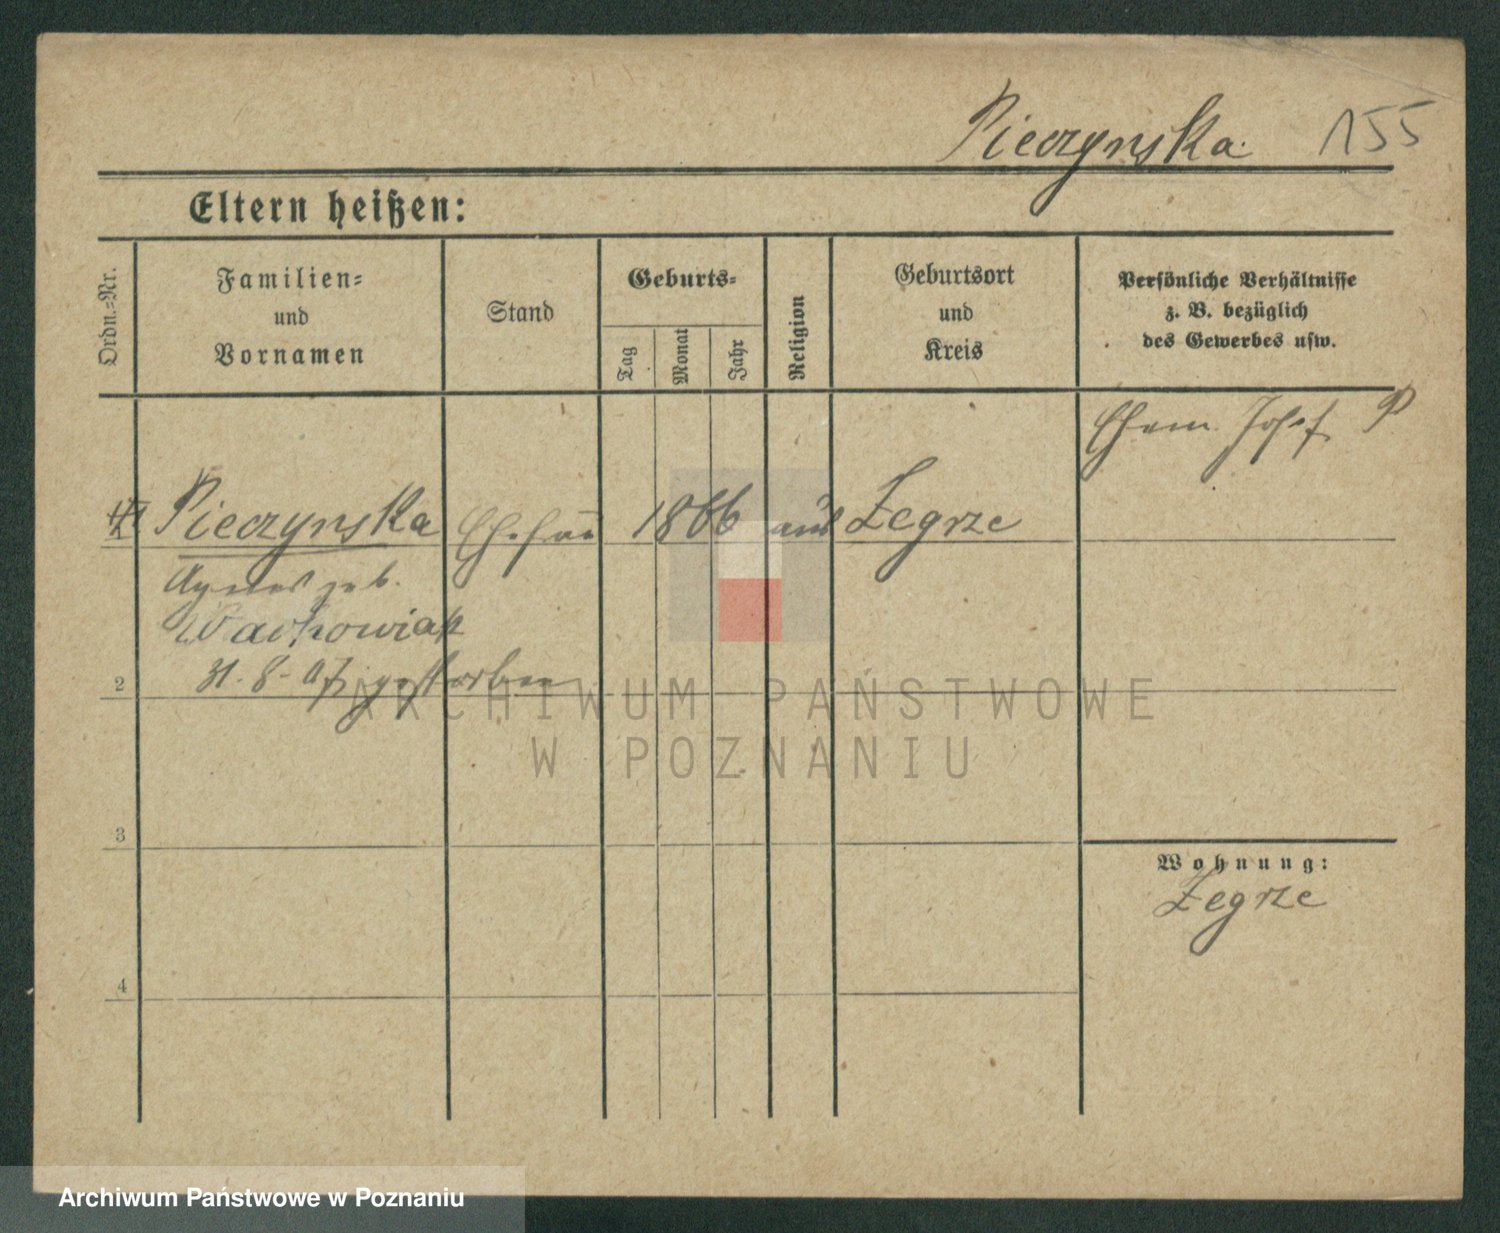 Pieczynska 155
Eltern heißen:
Ordn.-Nr.
Familien-
und
Vornamen
Stand
Geburts-
Tag
Monat
Jahr
Religion
Geburtsort
und
Kreis
Persönliche Verhältnisse
z. B. bezüglich
des Gewerbes usw.
Ehem. Josef P
Pieczynska Ehefrau 1866 aus Zegrze
Agnes geb.
Wachowiak
2 31.8-07 gestorben
ARCHIWUM PAŃSTWOWE
W POZNANIU
3
Wohnung:
Zegrze
4
Archiwum Państwowe w Poznaniu